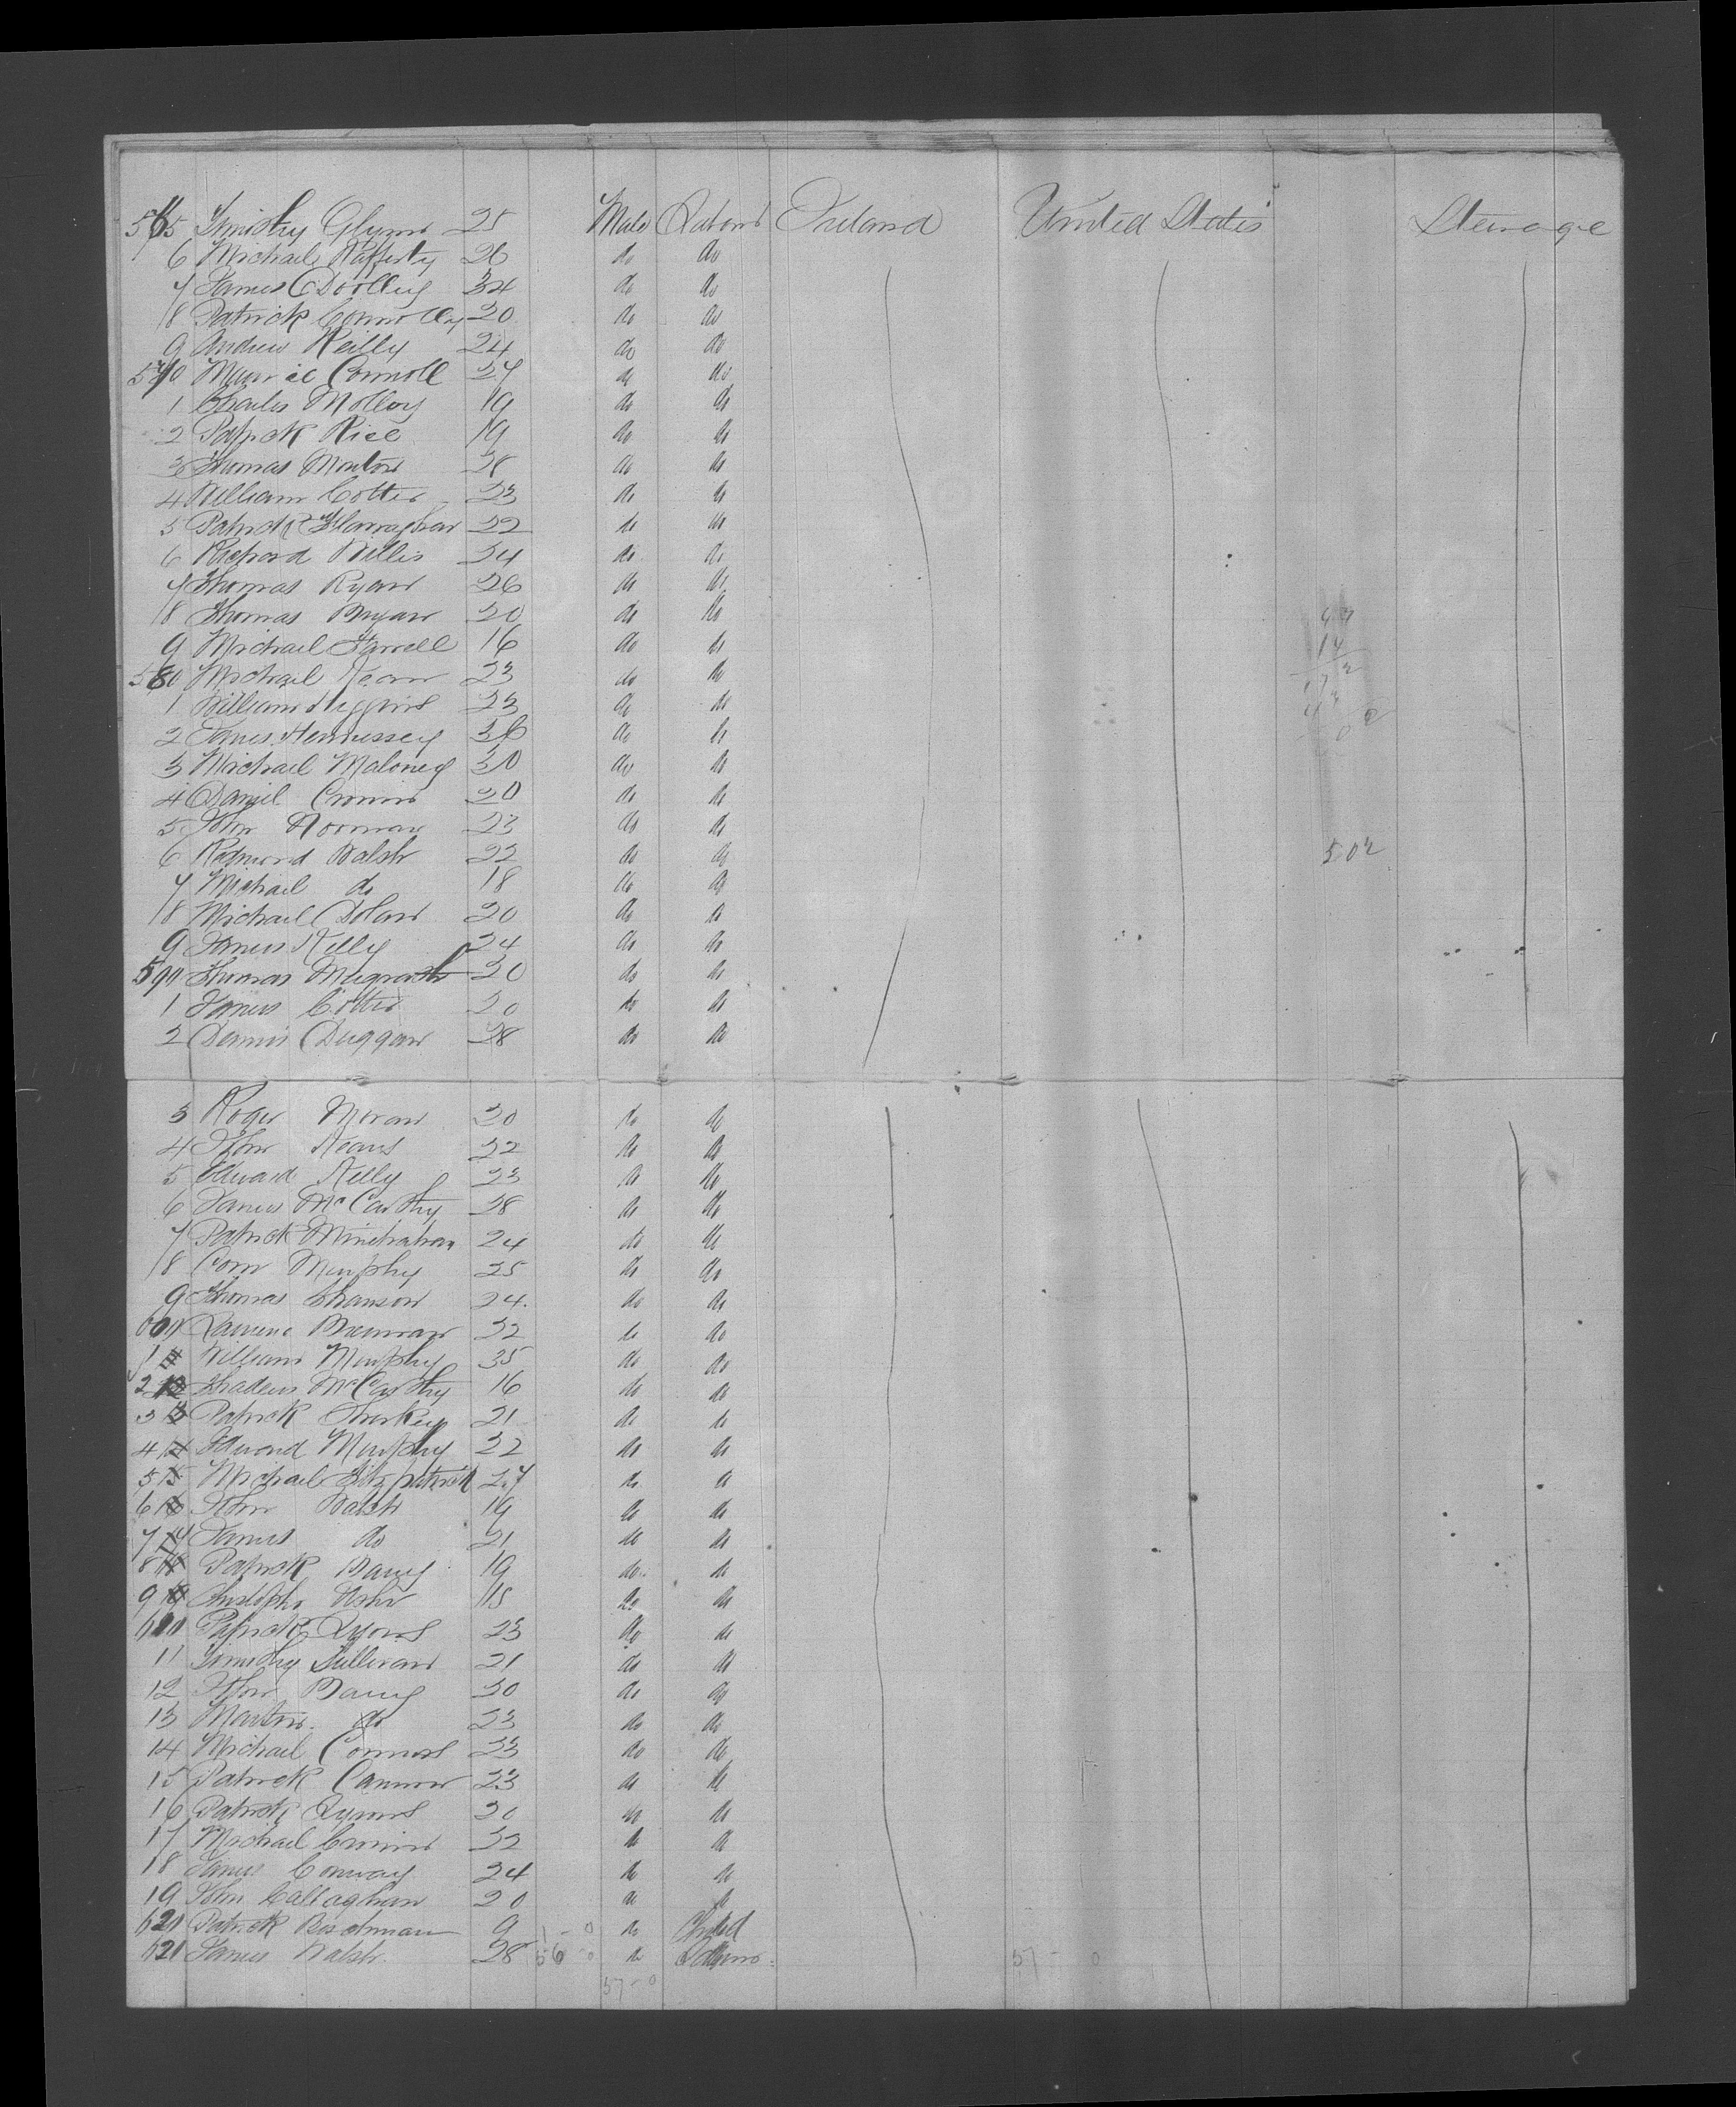 565 Timothy Glynn 25 Male Labour Ireland United States Steerage
6 Michael Rafferty 26 do do
7 James Dooley 34 do do
18 Patrick Connolly 20 do do
9 Andrew Reilly 24 do do
570 Maurice Connell 27 do do
1 Charles Molloy 19 do do
2 Patrick Rice 19 do do
3 Thomas Monton 28 do do
4 William Cotter 23 do do
5 Patrick Flanaghan 22 do do
6 Richard Willis 24 do do
7 Thomas Ryan 26 do do
18 Thomas Bryan 20 do do
9 Michael Farrell 16 do do
580 Michael Kean 23 do do
1 William Higgins 23 do do
2 James Hennessey 36 do do
3 Michael Maloney 30 do do
4 Daniel Cronin 20 do do
5 John Noonan 23 do do
6 Redmond Walsh 22 do do 502
7 Michael do 18 do do
18 Michael Dolan 20 do do
9 James Kelly 24 do do
590 Thomas Megrath 20 do do
1 James Cotter 20 do do
2 Dennis Duggan 28 do do
3 Roger Moran 20 do do
4 John Keane 22 do do
5 Edward Kelly 23 do do
6 James McCarthy 28 do do
7 Patrick Minchahan 24 do do
18 Corn Murphy 25 do do
9 Thomas Shanson 24 do do
600 Laurence Brennan 22 do do
1 William Murphy 35 do do
2 Thadeus McCarthy 16 do do
3 Patrick Sharkey 21 do do
4 Edward Murphy 22 do do
5 Michael Fitzpatrick 27 do do
6 John Walsh 19 do do
7 James do 21 do do
8 Patrick Barry 19 do do
9 Christopher Usher 18 do do
610 Patrick Lyons 23 do do
11 Timothy Sullivan 21 do do
12 John Barry 30 do do
13 Martin do 23 do do
14 Michael Connors 23 do do
15 Patrick Cannon 23 do do
16 Patrick Lyons 20 do do
17 Michael Cronin 22 do do
18 James Conway 24 do do
19 John Callaghan 20 do do
620 Patrick Boschman 9 1-0 do Child
621 James Walsh 28 56 0 do Labour 57-0
57-0